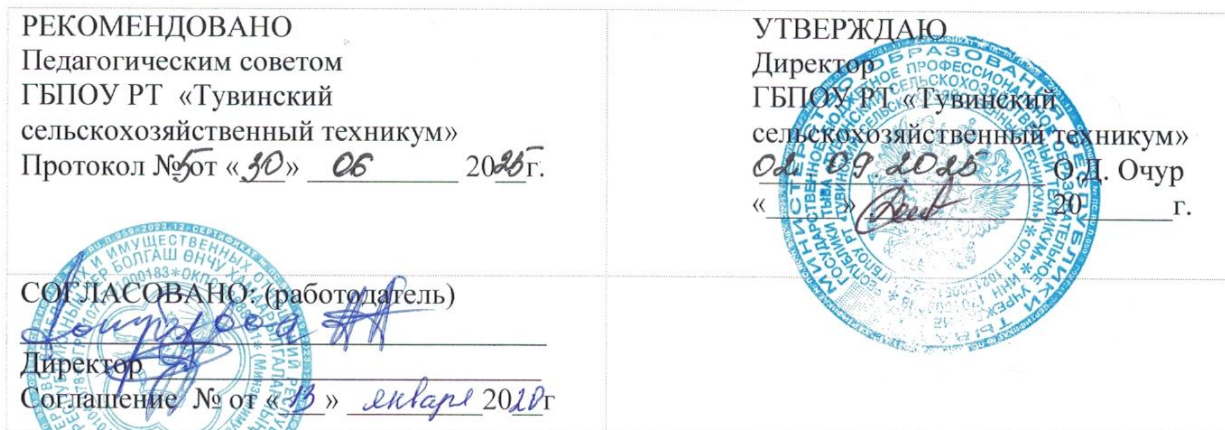 РЕКОМЕНДОВАНО
Педагогическим советом
ГБПОУ РТ «Тувинский
сельскохозяйственный техникум»
Протокол №5от «30» 06 2025г.
УТВЕРЖДАЮ
Директор
ГБПОУ РТ «Тувинский
сельскохозяйственный техникум»
02 09.2025 О.Д. Очур
«___» 20 г.
СОГЛАСОВАНО: (работодатель)
Директор
Соглашение № от «13» января 2020г